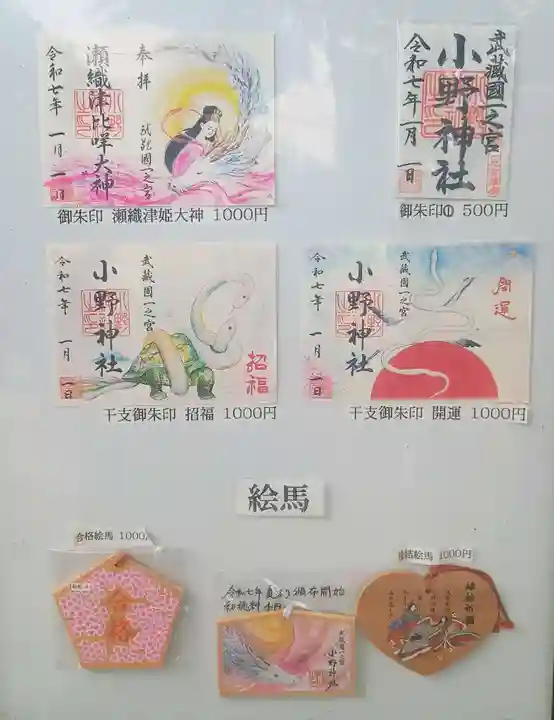 奉拝
武蔵國一之宮
瀬織津比咩大神
令和七年 一月 一日
御朱印 瀬織津姫大神 1000円
武蔵國一之宮
小野神社
令和七年一月一日
御朱印① 500円
武蔵國一之宮
小野神社
令和七年 一月 一日
招福
干支御朱印 招福 1000円
武蔵國一之宮
小野神社
令和七年 一月 一日
開運
干支御朱印 開運 1000円
絵馬
合格絵馬 1000
合格
令和七年夏より頒布開始
初穂料
武蔵國一之宮
小野神社
絵馬 1000円